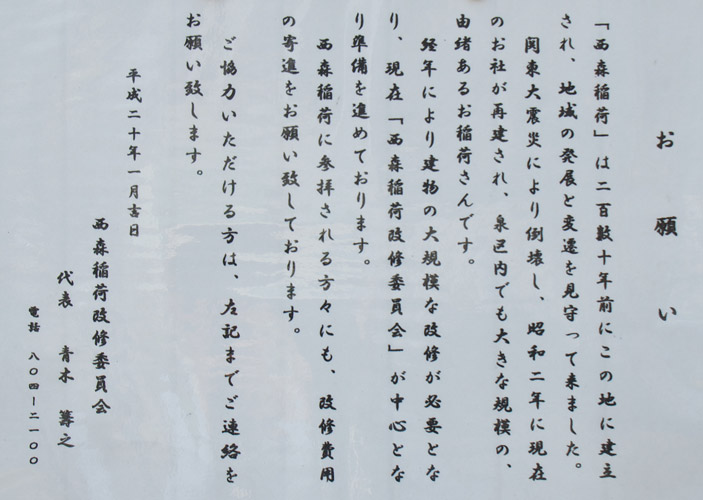 お願い
「西森稲荷」は二百数十年前にこの地に建立
され、地域の発展と変遷を見守って来ました。
関東大震災により倒壊し、昭和二年に現在
のお社が再建され、泉区内でも大きな規模の、
由緒あるお稲荷さんです。
経年により建物の大規模な改修が必要とな
り、現在「西森稲荷改修委員会」が中心とな
り準備を進めております。
西森稲荷に参拝される方々にも、改修費用
の寄進をお願い致しております。
ご協力いただける方は、左記までご連絡を
お願い致します。
平成二十年一月吉日
西森稲荷改修委員会
代表 青木 籌之
電話 八〇四―二一〇〇